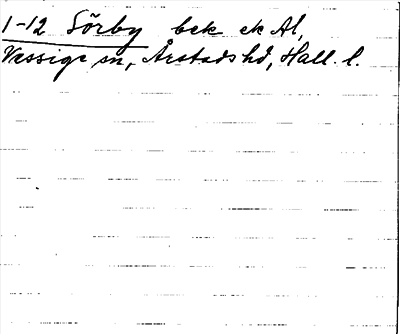 1-12 Sörby bek ek Al,
Vessige sn, Årstads hd, Hall. l.